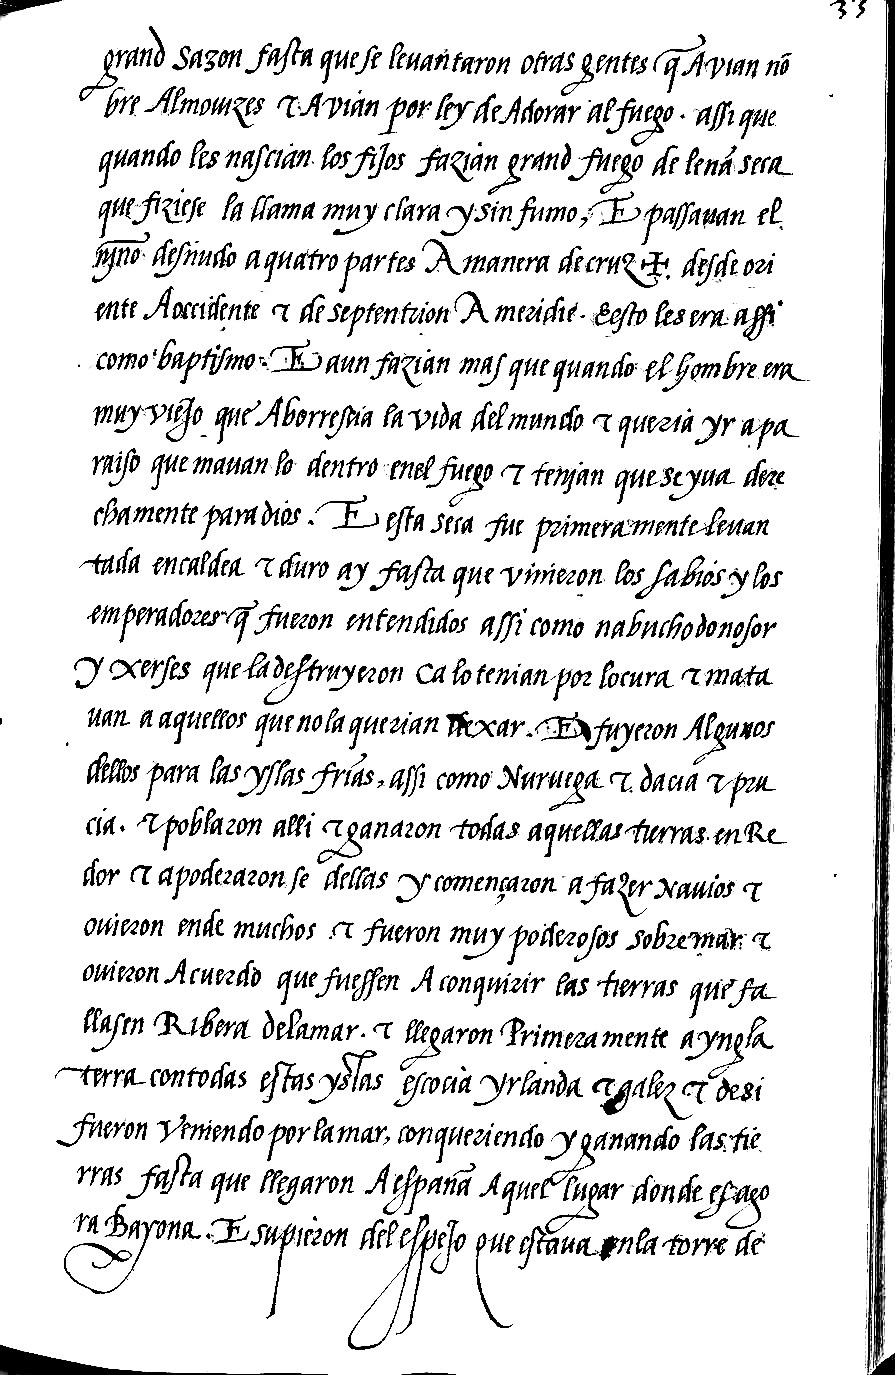 33
grand sazon fasta que se leuantaron otras gentes q̃ Avian nõ
bre Almouizes τ Avian por ley de Adorar al fuego. assi que
quando les nascian los fijos fazian grand fuego de lena seca
que fiziese la llama muy clara y sin fumo, E passauan el
njño desnudo a quatro partes A manera de cruz ✠. desde ori
ente A occidente τ de septentrion A meridie. E esto les era assi
como baptismo. E aun fazian mas que quando el hombre era
muy viejo que Aborrescia la vida del mundo τ queria yr a pa
raiso quemauan lo dentro enel fuego τ tenjan que se yua dere
chamente para dios. E esta seca fue primeramente leuan
tada en caldea τ duro ay fasta que vinieron los sabios y los
emperadores q̃ fueron entendidos assi como nabuchodonosor
y xerses que la destruyeron Ca lo tenian por locura τ mata
uan a aquellos que no la querian dexar. E fuyeron Algunos
dellos para las yslas frias, assi como Nuruega τ dacia τ pru
cia. τ poblaron alli τ ganaron todas aquellas tierras en Re
dor τ apoderaron se dellas y començaron a fazer Nauios τ
ouieron ende muchos τ fueron muy poderosos sobre mar τ
ouieron Acuerdo que fuessen A conquirir las tierras que fa
llasen Ribera dela mar. τ llegaron Primeramente a yngla
terra con todas estas yslas escocia yrlanda τ galez τ desi
fueron veniendo por la mar, conqueriendo y ganando las tie
rras fasta que llegaron A españa Aquel lugar donde es ago
ra Bayona. E supieron del espejo que estaua en la torre de